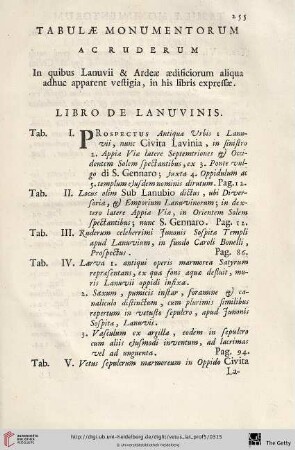 255
TABULÆ MONUMENTORUM
AC RUDERUM
In quibus Lanuvii & Ardeæ ædificiorum aliqua
adhuc apparent vestigia, in his libris expressæ.
LIBRO DE LANUVINIS.
Tab. I. PROSPECTUS Antiquæ Urbis 1 Lanu-
vii, nunc Civita Lavinia, in sinistro
2. Appia Via latere Septemtriones & Occi-
dentem Solem spectantibus, ex 3. Ponte vulgo
di S. Gennaro; juxta 4. Oppidulum ac
5. templum ejusdem nominis dirutum. Pag. 12.
Tab. II. Locus olim Sub Lanubio dictus, ubi Diver-
soria, & Emporium Lanuvinorum; in dex-
tero latere Appiæ Viæ, in Orientem Solem
spectantibus; nunc S. Gennaro. Pag. 12.
Tab. III. Ruderum celeberrimi Junonis Sospitæ Templi
apud Lanuvium, in fundo Caroli Bonelli,
Prospectus. Pag. 86.
Tab. IV. Larva 1. antiqui operis marmorea Satyrum
repræsentans, ex qua fons aquæ defluit, mu-
ris Lanuvii oppidi infixa.
2. Saxum, pumicis instar, foramine & ca-
naliculo distinctum, cum plurimis similibus
repertum in vetusto sepulcro, apud Junonis
Sospitæ, Lanuvii.
3. Vasculum ex argilla, eodem in sepulcro
cum aliis ejusmodi inventum, ad lacrimas
vel ad unguenta. Pag. 94.
Tab. V. Vetus sepulcrum marmoreum in Oppido Civita
La-
UNIVERSITÄTS-
BIBLIOTHEK
HEIDELBERG
© The Getty